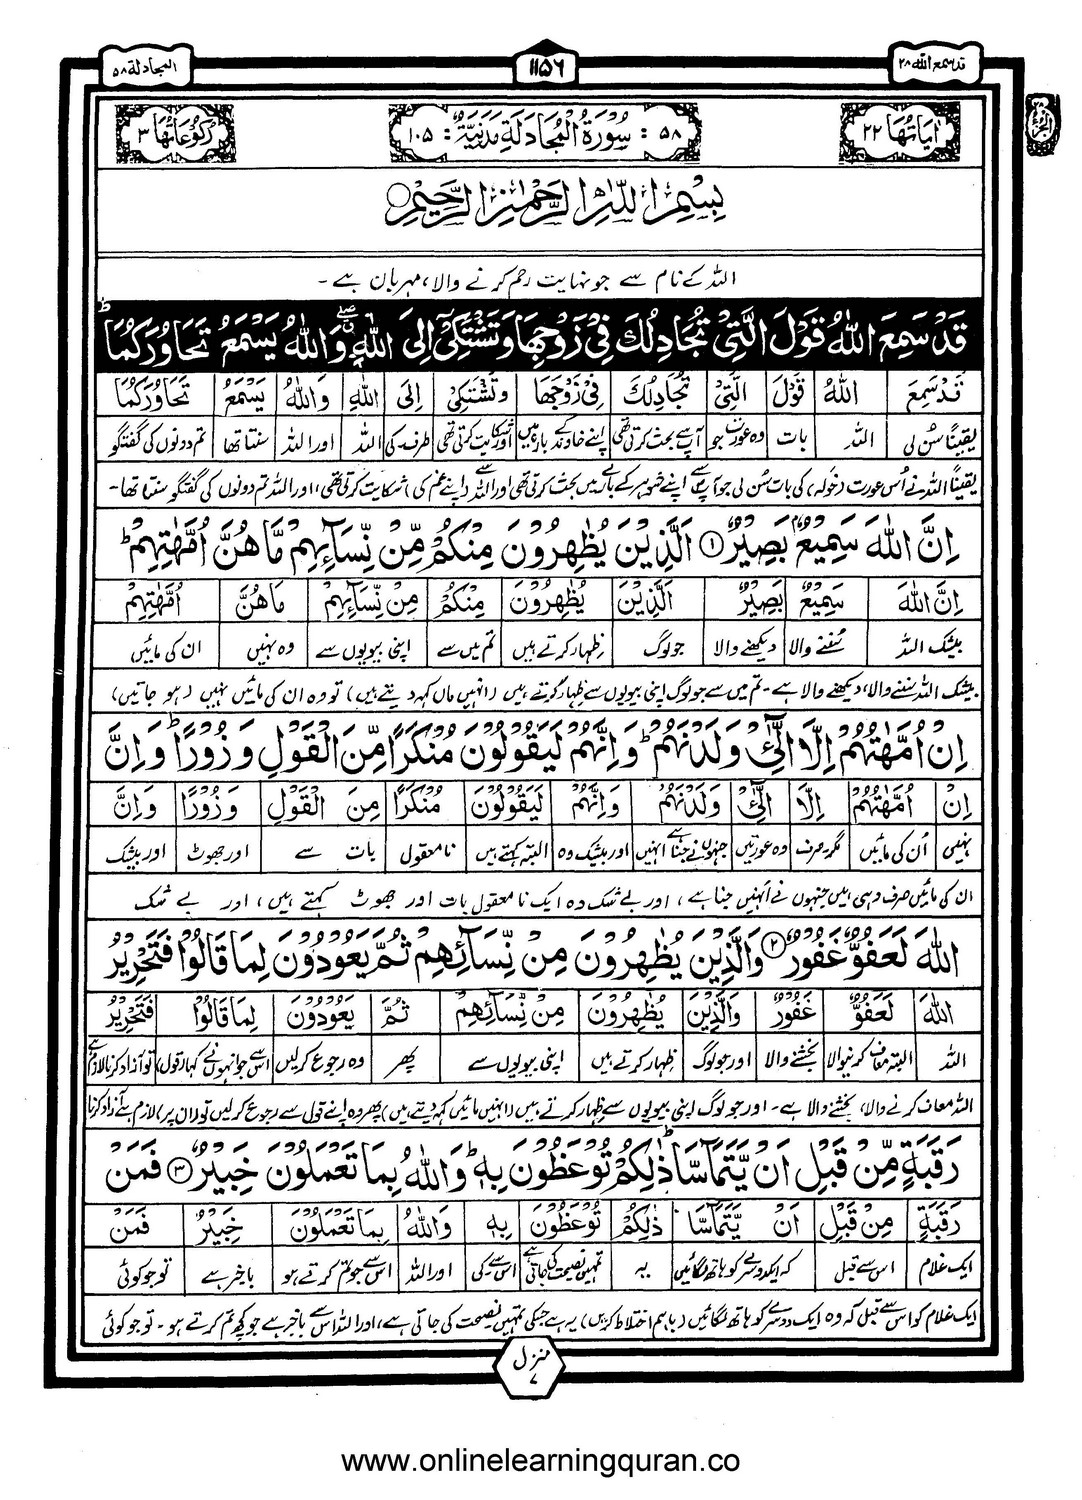 قد سمع اللہ ۲۸
۱۱۵۶
المجادلة ۵۸
اٰیَاتُهَا ۲۲
۵۸ : سُوْرَةُ الْمُجَادَلَةِ مَدَنِيَّةٌ : ۱۰۵
رُكُوْعَاتُهَا ۳
بِسْمِ اللّٰهِ الرَّحْمٰنِ الرَّحِيْمِ
اللہ کے نام سے جو نہایت رحم کرنے والا، مہربان ہے ۔
قَدْ سَمِعَ اللّٰهُ قَوْلَ الَّتِيْ تُجَادِلُكَ فِيْ زَوْجِهَا وَتَشْتَكِيْٓ اِلَى اللّٰهِ ۖ وَاللّٰهُ يَسْمَعُ تَحَاوُرَكُمَا ؕ
قَدْ سَمِعَ اللّٰهُ قَوْلَ الَّتِيْ تُجَادِلُكَ فِيْ زَوْجِهَا وَتَشْتَكِيْٓ اِلَى اللّٰهِ وَاللّٰهُ يَسْمَعُ تَحَاوُرَكُمَا
یقیناً سُن لی اللہ بات وہ عورت جو آپ سے بحث کرتی تھی اپنے خاوند کے بارہ میں اور شکایت کرتی تھی طرف کی اللہ اور اللہ سنتا تھا تم دونوں کی گفتگو
یقیناً اللہ نے اُس عورت (خولہ) کی بات سُن لی جو آپ سے اپنے شوہر کے بارے میں بحث کرتی تھی اور اللہ سے (اپنے غم کی) شکایت کرتی تھی، اور اللہ تم دونوں کی گفتگو سنتا تھا۔
اِنَّ اللّٰهَ سَمِيْعٌۢ بَصِيْرٌ ۱ اَلَّذِيْنَ يُظٰهِرُوْنَ مِنْكُمْ مِّنْ نِّسَآئِهِمْ مَّا هُنَّ اُمَّهٰتِهِمْ ؕ
اِنَّ اللّٰهَ سَمِيْعٌ بَصِيْرٌ اَلَّذِيْنَ يُظٰهِرُوْنَ مِنْكُمْ مِنْ نِّسَآئِهِمْ مَا هُنَّ اُمَّهٰتِهِمْ
بیشک اللہ سُننے والا دیکھنے والا جو لوگ ظہار کرتے ہیں تم میں سے اپنی بیویوں سے وہ نہیں ان کی مائیں
بیشک اللہ سننے والا، دیکھنے والا ہے ۔ تم میں سے جو لوگ اپنی بیویوں سے ظہار کرتے ہیں (انہیں ماں کہہ دیتے ہیں) تو وہ ان کی مائیں نہیں (ہو جاتیں)
اِنْ اُمَّهٰتُهُمْ اِلَّا الّٰٓـِٔيْ وَلَدْنَهُمْ ؕ وَاِنَّهُمْ لَيَقُوْلُوْنَ مُنْكَرًا مِّنَ الْقَوْلِ وَزُوْرًا ؕ وَاِنَّ
اِنْ اُمَّهٰتُهُمْ اِلَّا الّٰٓـِٔيْ وَلَدْنَهُمْ وَاِنَّهُمْ لَيَقُوْلُوْنَ مُنْكَرًا مِنَ الْقَوْلِ وَزُوْرًا وَاِنَّ
نہیں اُن کی مائیں مگر صرف وہ عورتیں جنہوں نے جنا ہے انہیں اور بیشک وہ البتہ کہتے ہیں نامعقول سے بات اور جھوٹ اور بیشک
ان کی مائیں صرف وہی ہیں جنہوں نے اُنہیں جنا ہے ، اور بے شک وہ ایک نامعقول بات اور جھوٹ کہتے ہیں، اور بے شک
اللّٰهَ لَعَفُوٌّ غَفُوْرٌ ۲ وَالَّذِيْنَ يُظٰهِرُوْنَ مِنْ نِّسَآئِهِمْ ثُمَّ يَعُوْدُوْنَ لِمَا قَالُوْا فَتَحْرِيْرُ
اللّٰهَ لَعَفُوٌّ غَفُوْرٌ وَالَّذِيْنَ يُظٰهِرُوْنَ مِنْ نِّسَآئِهِمْ ثُمَّ يَعُوْدُوْنَ لِمَا قَالُوْا فَتَحْرِيْرُ
اللہ البتہ معاف کرنیوالا بخشنے والا اور جو لوگ ظہار کرتے ہیں اپنی بیویوں سے پھر وہ رجوع کرلیں اس سے جو انہوں نے کہا (قول) تو آزاد کرنا لازم ہے
اللہ معاف کرنے والا، بخشنے والا ہے ۔ اور جو لوگ اپنی بیویوں سے ظہار کرتے ہیں (انہیں مائیں کہہ دیتے ہیں) پھر وہ اپنے قول سے رجوع کر لیں تو (ان پر) لازم ہے آزاد کرنا
رَقَبَةٍ مِّنْ قَبْلِ اَنْ يَّتَمَآسَّا ؕ ذٰلِكُمْ تُوْعَظُوْنَ بِهٖ ؕ وَاللّٰهُ بِمَا تَعْمَلُوْنَ خَبِيْرٌ ۳ فَمَنْ
رَقَبَةٍ مِنْ قَبْلِ اَنْ يَّتَمَآسَّا ذٰلِكُمْ تُوْعَظُوْنَ بِهٖ وَاللّٰهُ بِمَا تَعْمَلُوْنَ خَبِيْرٌ فَمَنْ
ایک غلام اس سے قبل کہ ایک دوسرے کو ہاتھ لگائیں یہ تمہیں نصیحت کی جاتی ہے اس سے کی اور اللہ اس سے جو تم کرتے ہو باخبر ہے تو جو کوئی
ایک غلام کو اس سے قبل کہ وہ ایک دوسرے کو ہاتھ لگائیں (باہم اختلاط کریں) یہ ہے جسکی تمہیں نصیحت کی جاتی ہے، اور اللہ اس سے باخبر ہے جو کچھ تم کرتے ہو ۔ تو جو کوئی
منزل ۷
www.onlinelearningquran.co